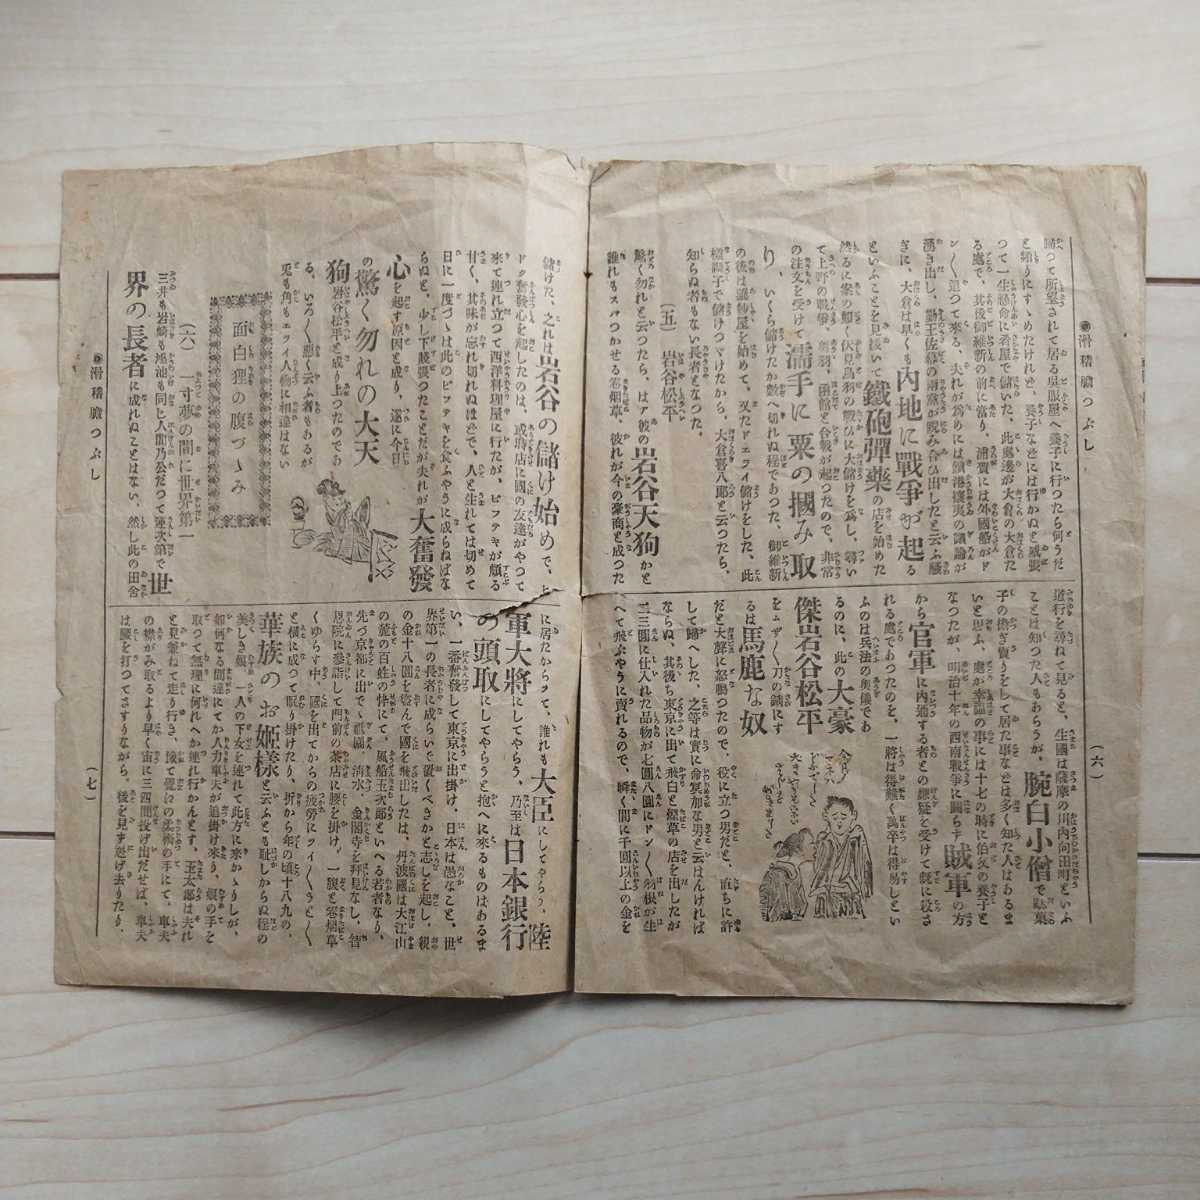 ●滑稽膽つぶし
(六)
勝つて所望されて居る呉服屋へ養子に行つたら何うだ
と頻りにすゝめたけれど、養子などには行かぬと威張
つて一生懸命に看屋で儲いた、此處邊が大倉の大倉た
る處で、其後御維新の前に當り、浦賀には外國船がド
ン〱迫つて來る、夫れが爲めには鎖港攘夷の議論が
湧き出し、勤王佐幕の兩黨が睨み合ひ出したと云ふ騷
ぎに、大倉は早くも内地に戰爭が起る
といふことを見拔いて鐵砲彈藥の店を始めた
然るに案の如く伏見鳥羽の戰ひに大儲けを爲し、尋い
て上野の戰爭、奥羽、函館と合戰が起つたので、非常
の注文を受けて濡手に粟の摑み取
り、いくら儲けたか數へ切れぬ程であつた、御維新
の後は
を始めて、又たドエライ儲けをした、此
樣調子で儲けつゞけたから、大倉喜八郎と云つたら、
知らぬ者もない長者となつた。
(五) 岩谷松平
驚く勿れと云つたら、ハア彼の岩谷天狗かと
誰れもスパつかせる卷烟草、彼れが今の豪商と成つた
道行を尋ねて見ると、生國は薩摩の川内向田町といふ
ことは知つた人もあらうが、腕白小僧で駄菓
子の擔ぎ賣りをして居た事などは多く知た人はあるま
いと思ふ、處が幸福の事には十七の時に伯父の養子と
なつたが、明治十年の西南戰爭に圖らず賊軍の方
から官軍に内通する者との嫌疑を受けて既に殺さ
れる處であつたのを、一將は得難く萬卒は得易しとい
ふのは兵法の奥儀であ
るのに、此の大豪
傑岩谷松平
をムザ〱刀の錆にす
るは馬鹿な奴
だと大聲に怒鳴つたので、役に立つ男だと、直ちに許
して歸へした、之等は實に命冥加な男と云はんければ
ならぬ、其後ち東京に出て飛白と烟草の店を出したが
二三圓に仕入れた品物が七圓八圓にドン〱羽根が生
へて飛ぶやうに賣れるので、瞬く間に千圓以上の金を
儲けた、之れは岩谷の儲け始めで、よ
ドク奮發心を起したのは、或時店に國の友達がやつて
來て連れ立つて西洋料理屋に行たが、ビフテキが頗る
甘く、其味が忘れ切れぬほどで、人と生れては切めて
日に一度づゝは此のビフテキを食ふやうに成らねばな
らぬと、少し下賤張つたことだが夫れが大奮發
心を起す原因と成り、遂に今日
の驚く勿れの大天
狗岩谷松平と成り上つたのであ
る、いろ〱惡く云ふ者もあるが
兎も角もエライ人物に相違はない
面白狸の腹づゝみ
(六) 一寸夢の間に世界第一
三井も岩崎も鴻池も同じ人間乃公だつて運次第で世
界の長者に成れぬことはない、然し此の田舍
に居たからツて、誰れも大臣にしてやらう、陸
軍大將にしてやらう、乃至は日本銀行
の頭取にしてやらうと抱へに來るものはあるま
い、一番奮發して東京に出掛け、日本は愚なこと、世
界第一の長者に成らいで置くべきかと志しを起し、親
の金十八圓を盜んで國を飛出したは、丹波國は大江山
の麓の百姓の忰にて、風船玉次郎といへる若者なり、
先づ京都に出でゝ祇園、清水、金閣寺を拜見なし、智
恩院に參詣して門前の茶店に腰を掛け、一腹と卷烟草
くゆらす中、國を出てからの疲勞にツイ〱うと〱
と横に成つて取り掛けたり、折から年の頃十八九の、
華族のお姫樣と云ふとも耻しからぬ程の
美しき娘、一人の下女を連れて此方に來かゝりしが、
如何なる間違にてか人力車夫が追掛け來り、娘の手を
取つて無理に何れへか連れ行かんとす、玉太郎は夫れ
と見兼ねて走り行き、
の柔術の手にて、車夫
の襟がみ取るより早く宙に三四間投げ出だせば、車夫
は腰を打つてさすりながら、後を見ず逃げ去りたり、
●滑稽膽つぶし
(七)